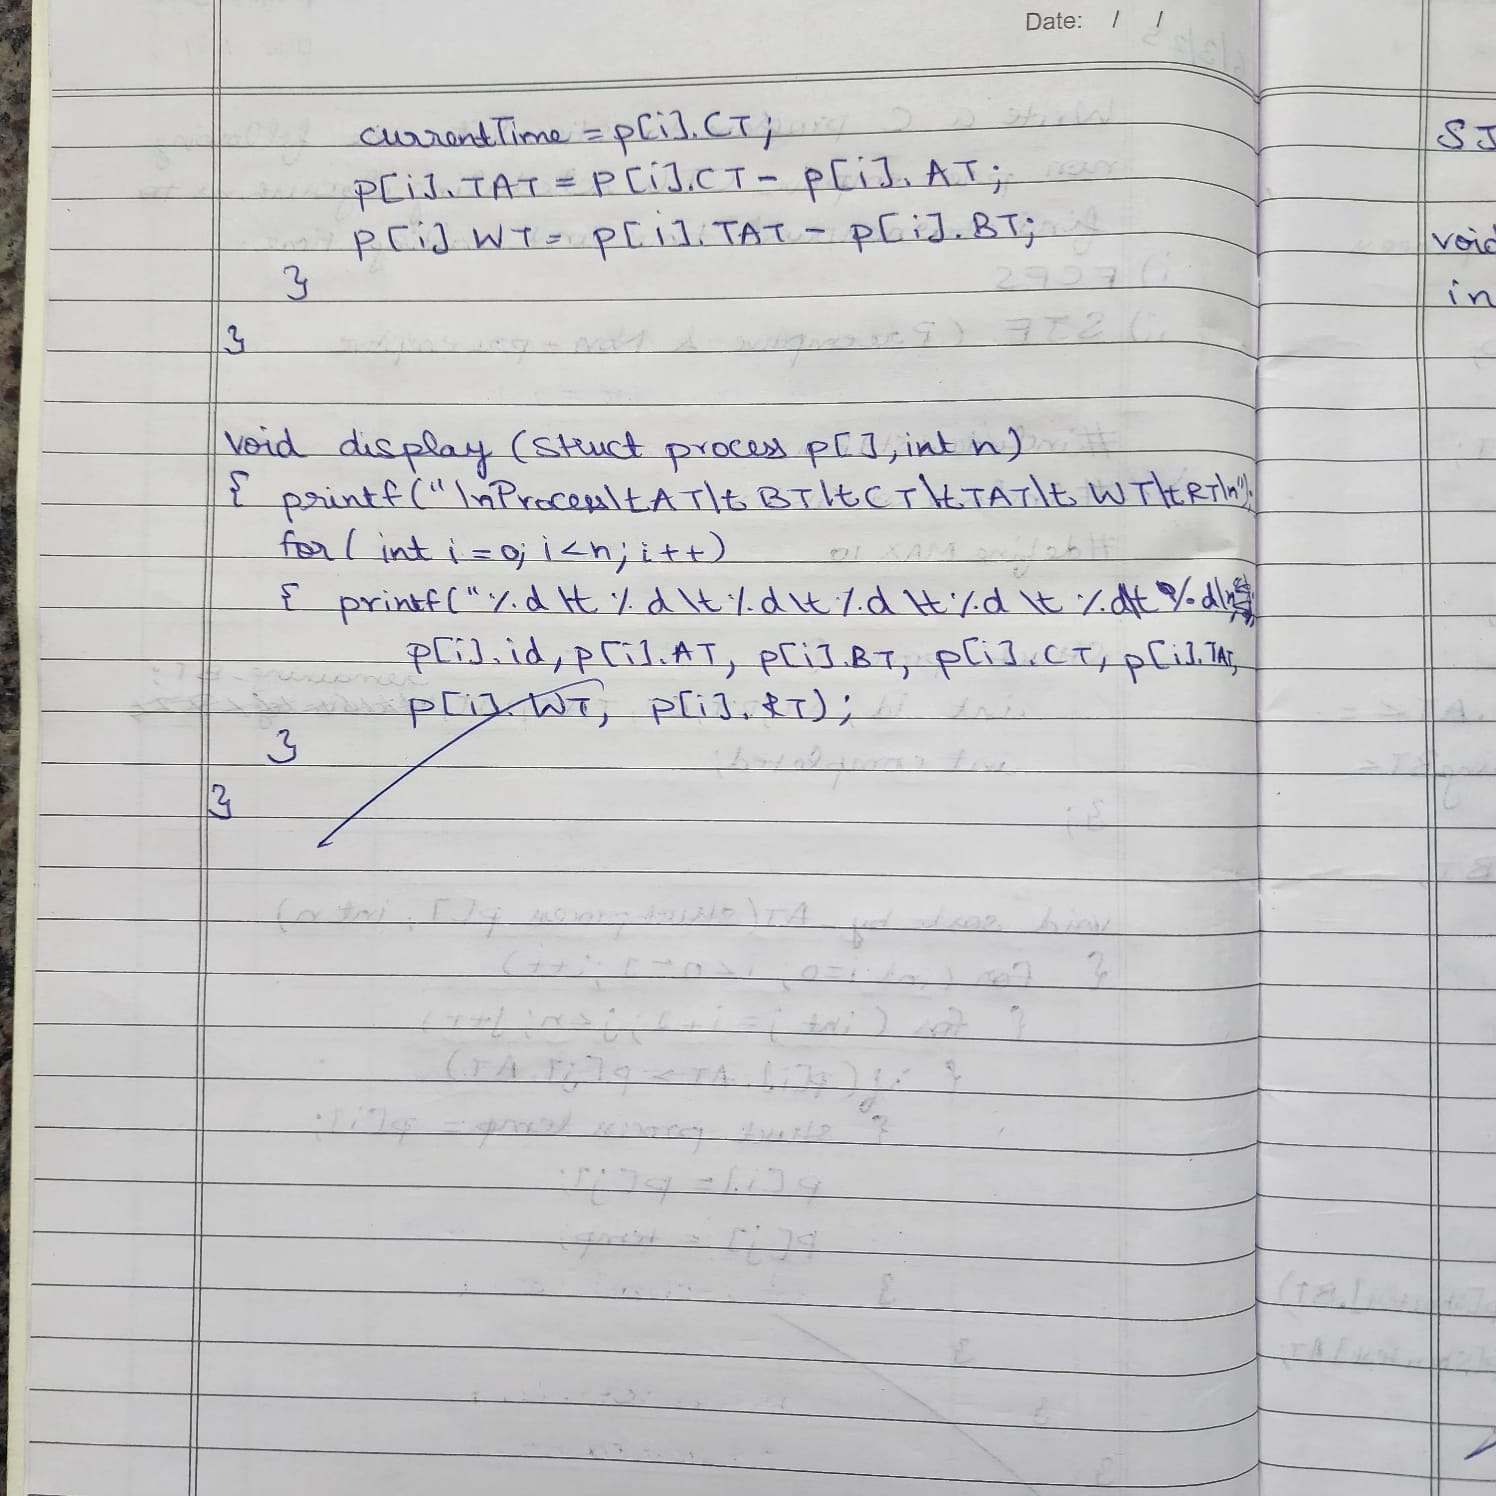 Date: / /
currentTime = p[i].CT;
p[i].TAT = p[i].CT - p[i].AT;
p[i].WT = p[i].TAT - p[i].BT;
}
}
void display (struct process p[], int n)
{ printf("\nProcess\tAT\tBT\tCT\tTAT\tWT\tRT\n");
for( int i=0; i<n; i++)
{ printf("%d\t%d\t%d\t%d\t%d\t%d\t%d\n
p[i].id, p[i].AT, p[i].BT, p[i].CT, p[i].TAT,
p[i].WT, p[i].RT);
}
}
SJ
void
in